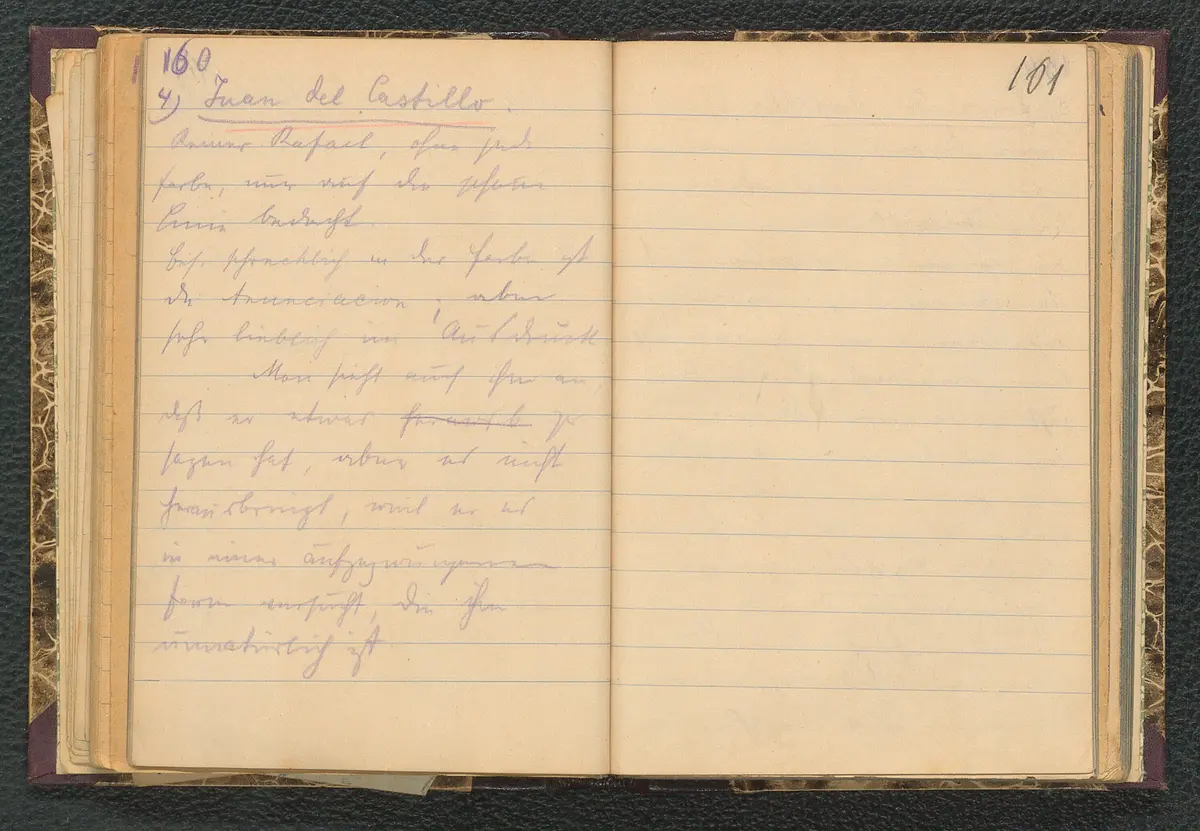 160
4) Juan del Castillo.
Reiner Rafael, ohne jede
Farbe, nur auf die schöne
Linie bedacht.
Bes. schrecklich in der Farbe ist
die Anunciacion, aber
sehr lieblich im Ausdruck
Man sieht auch ihm an,
daß er etwas zu
sagen hat, aber es nicht
herausbringt, weil er es
in einer aufgezwungenen
Form versucht, die ihm
unnatürlich ist
161